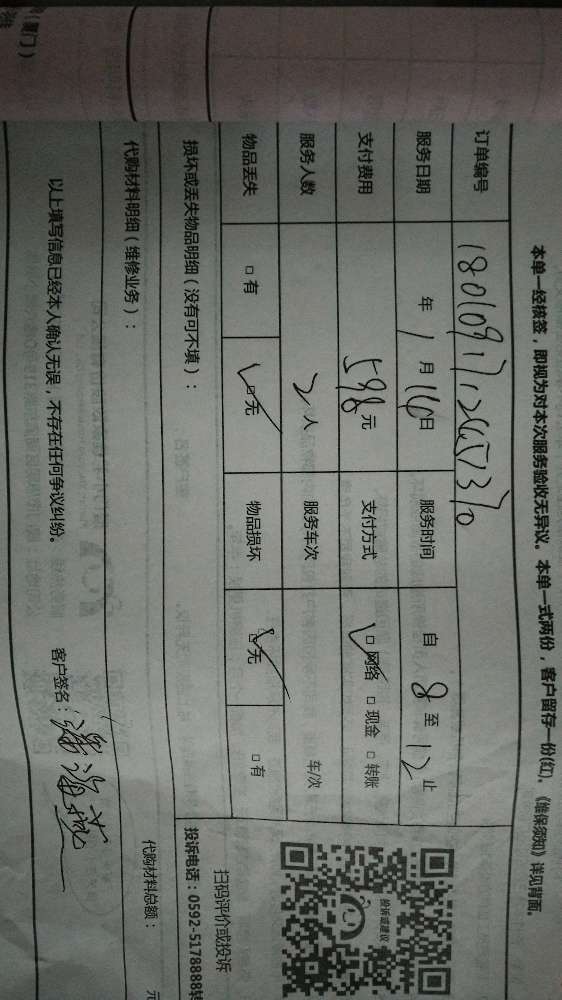 本单一经核签，即视为对本次服务验收无异议。本单一式两份，客户留存一份(红)，《维保须知》详见背面。
订单编号
服务日期 年 1 月 16 日 服务时间 自 8 至 12 止
支付费用 598 元 支付方式 ☑ 网络 □ 现金 □ 转账
服务人数 2 人 服务车次 车/次
物品丢失 □ 有 ☑ 无 物品损坏 ☑ 无 □ 有
损坏或丢失物品明细（没有可不填）：
扫码评价或投诉
投诉建议
投诉电话：0592-5178888转
代购材料明细（维修业务）： 代购材料总额： 元
以上填写信息已经本人确认无误，不存在任何争议纠纷。 客户签名：
(厦门)